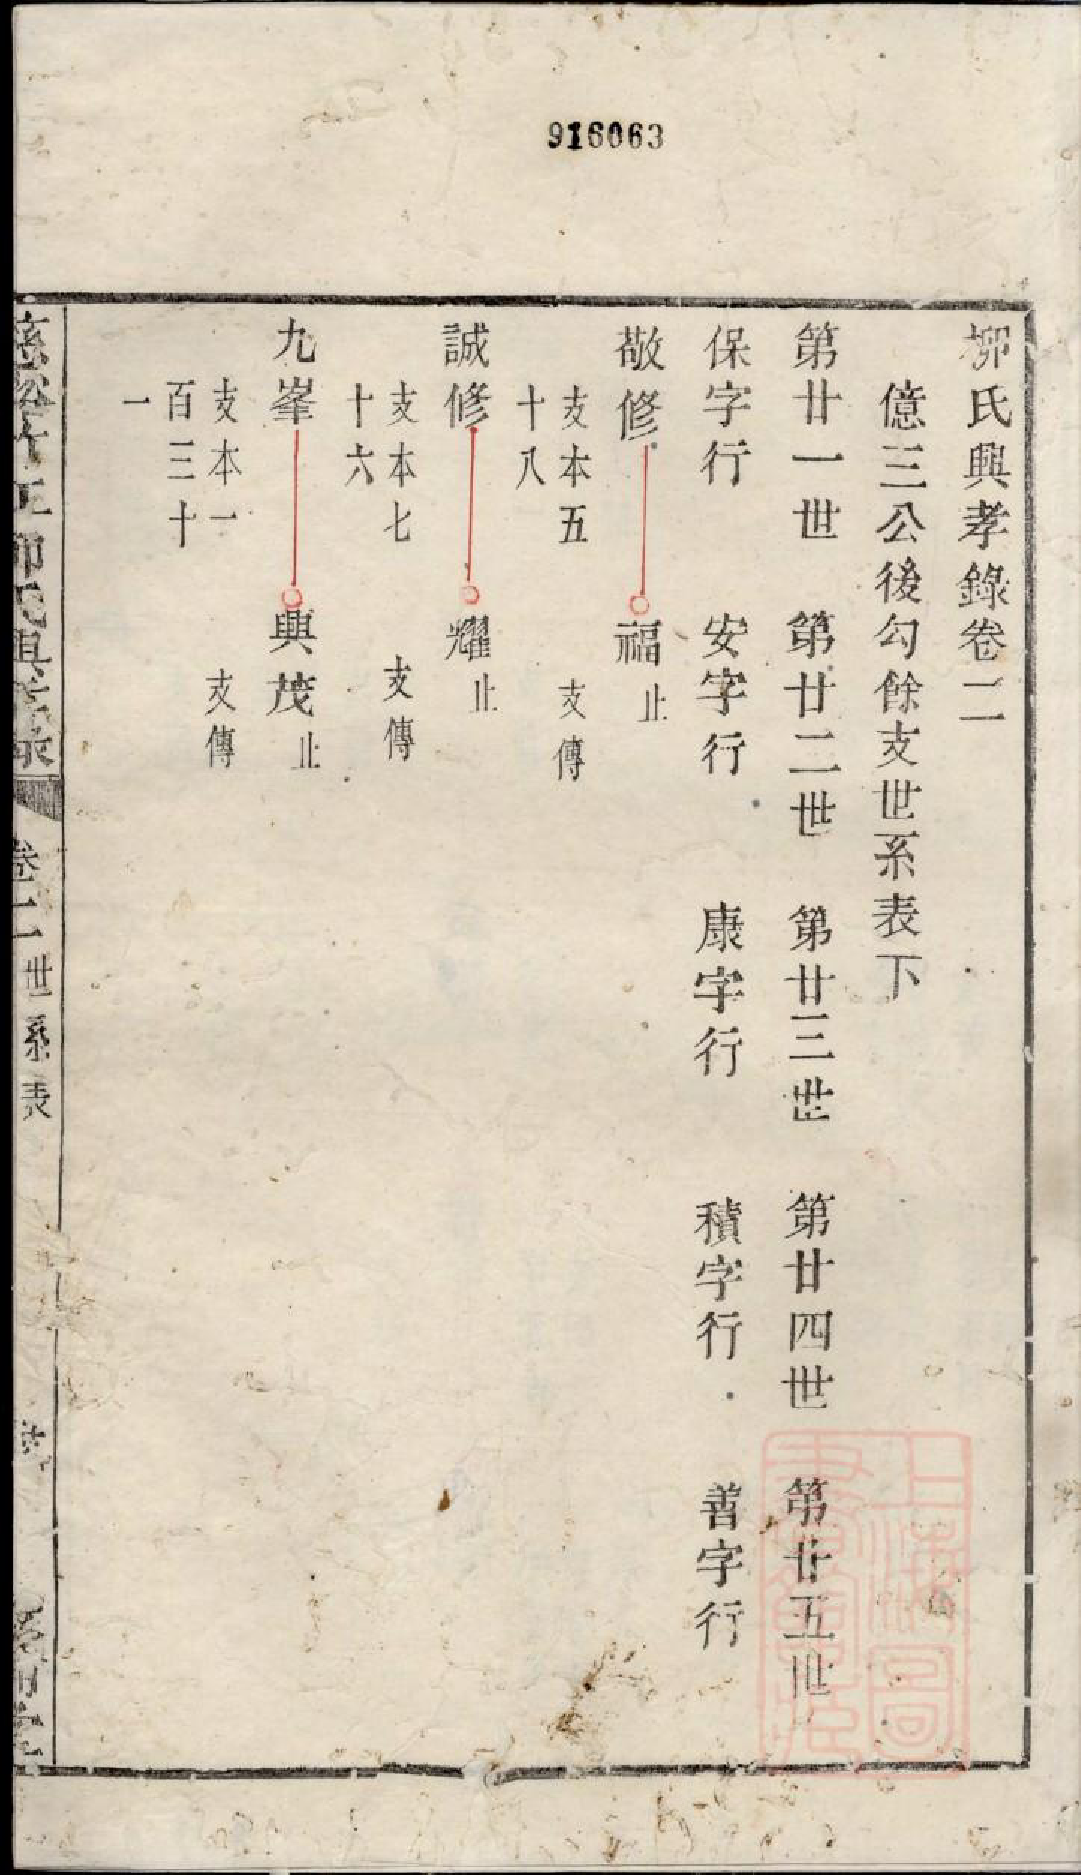 916063
柳氏興孝錄卷二
億三公後勾餘支世系表下
第廿一世 第廿二世 第廿三世 第廿四世 第廿五世
保字行 安字行 康字行 積字行 善字行
敬修 福止
支本五 支傳
十八
誠修 耀止
支本七 支傳
十六
九峯 興茂止
支本一 支傳
百三十
一
氏興孝錄 卷二 世系表
上海圖
書館藏